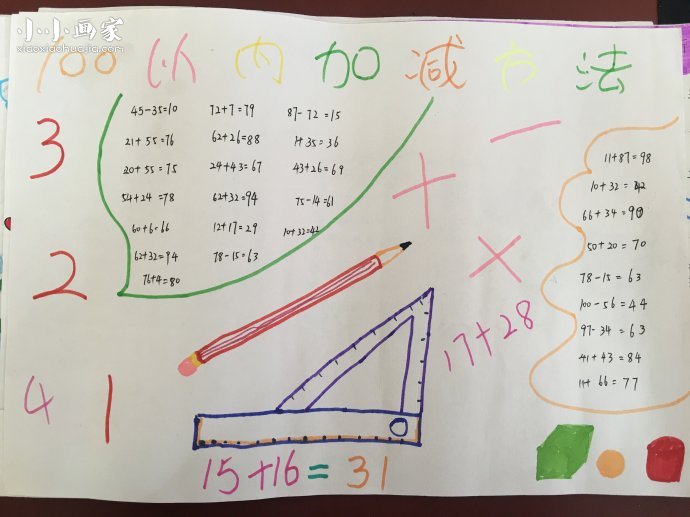 小小画家
xiaoxiaohuajia.com
100以内加减方法
45-35=10 72+7=79 87-72=15
21+55=76 62+26=88 1+35=36
20+55=75 24+43=67 43+26=69
54+24=78 62+32=94 75-14=61
60+6=66 12+17=29 10+32=42
62+32=94 78-15=63
76+4=80
3
2
4 1
+
-
×
11+87=98
10+32=42
66+34=90
50+20=70
78-15=63
100-56=44
97-34=63
41+43=84
11+66=77
17+28
15+16=31